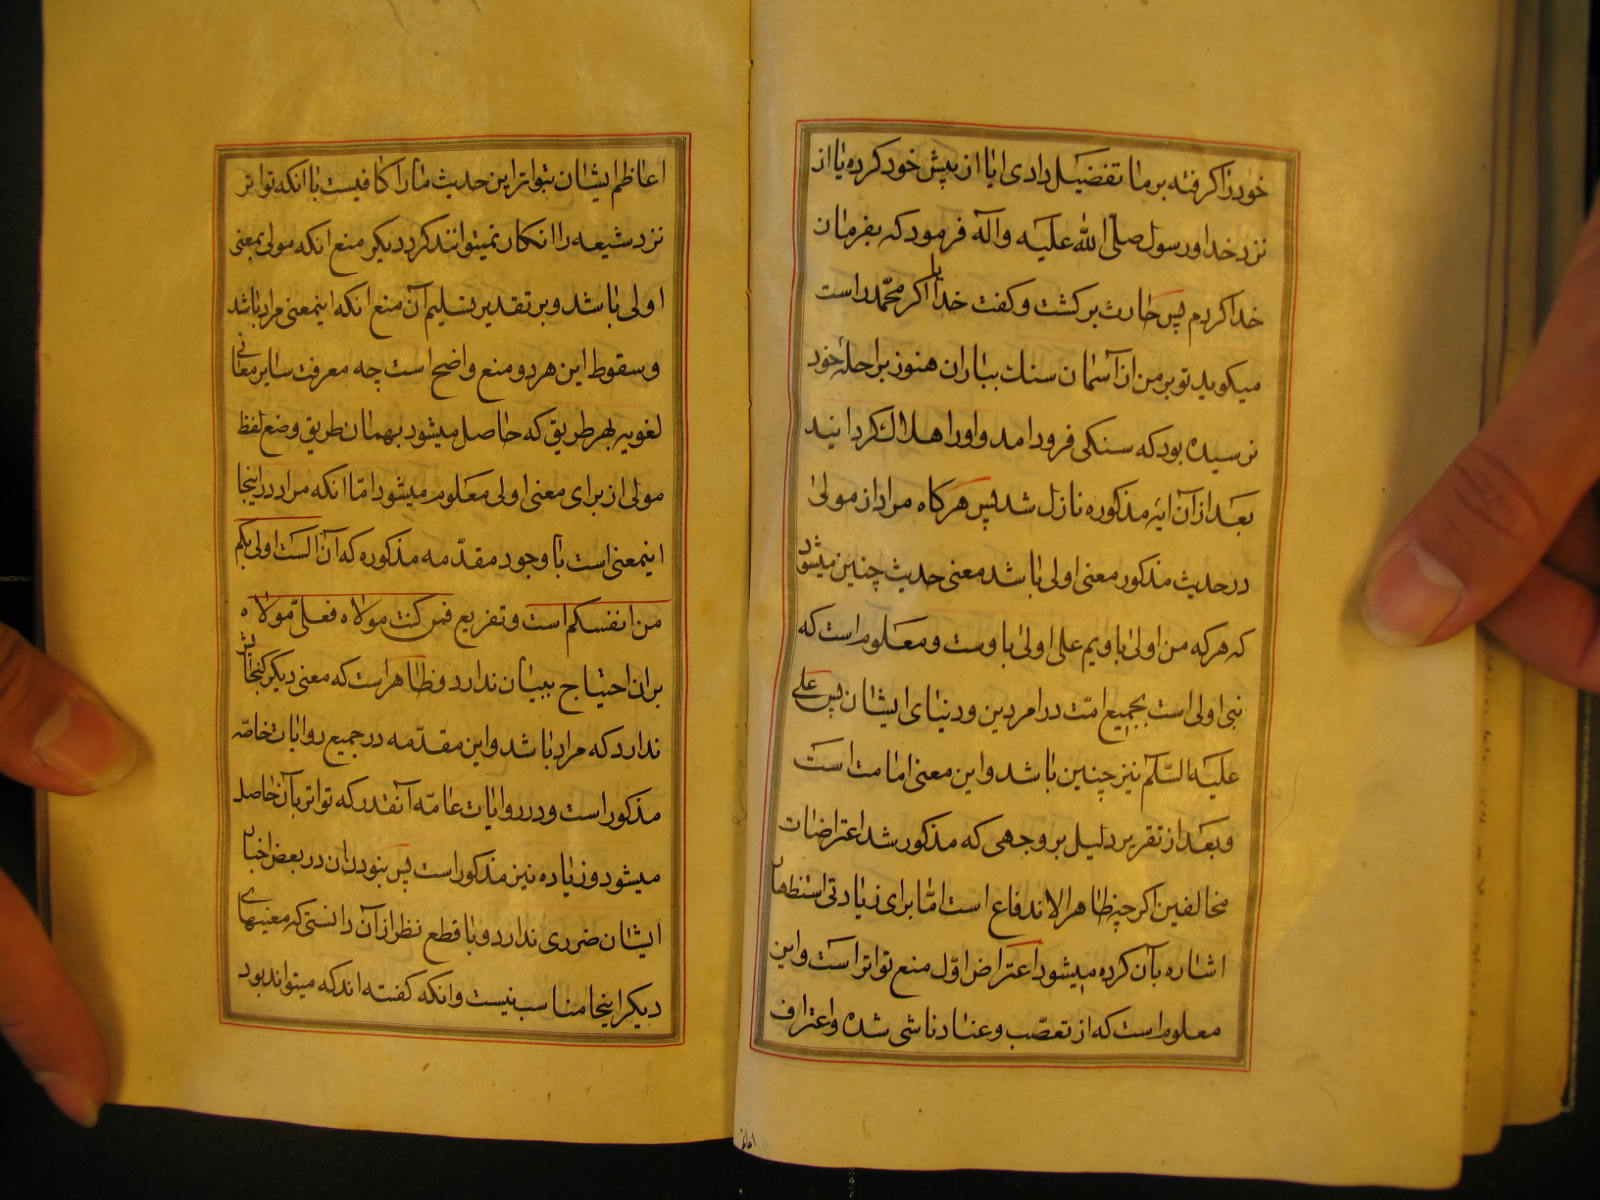 خود را کرفته بر ما تفضیل دادی ایا از پیش خود کرده یا از
نزد خدا و رسول صلّی الله علیه و آله فرمود که بفرمان
خدا کردم پس حارث برکشت و کفت خدایا اکر محمّد راست
میکوید تو بر من از آسمان سنک بباران هنوز براحلهٔ خود
نرسیده بود که سنکی فرود امد و او را هلاک کردانید
بعد از آن ایهٔ مذکوره نازل شد پس هرکاه مراد از مولی
در حدیث مذکور معنی اولی باشد معنی حدیث چنین میشود
که هر که من اولی باویم علی اولی باوست و معلوم است که
نبی اولی است بجمیع امّت در امر دین و دنیای ایشان پس علی
علیه السّلم نیز چنین باشد و این معنی امامت است
و بعد از تقریر دلیل بر وجهی که مذکور شد اعتراضات
مخالفین اکرچه ظاهر الاندفاع است امّا برای زیادتی استظهار
اشاره بآن کرده میشود اعتراض اوّل منع تواتر است و این
معلوم است که از تعصّب و عناد ناشی شده و اعتراف
اعاظم
اعاظم ایشان بتواتر این حدیث ما را کافیست با انکه تواتر
نزد شیعه را انکار نمیتوانند کرد دیکر منع انکه مولی بمعنی
اولی باشد و بر تقدیر تسلیم آن منع انکه اینمعنی مراد باشد
و سقوط این هر دو منع واضح است چه معرفت سایر معانی
لغویه بهر طریق که حاصل میشود بهمان طریق وضع لفظ
مولی از برای معنی اولی معلوم میشود امّا انکه مراد در اینجا
اینمعنی است با وجود مقدّمه مذکوره که آن الست اولی بکم
من انفسکم است و تفریع فمن کنت مولاه فعلیّ مولاه
بران احتیاج ببیان ندارد و ظاهر است که معنی دیکر کنجایش
ندارد که مراد باشد و این مقدّمه در جمیع روایات خاصّه
مذکور است و در روایات عامّه آنقدر که تواتر بآن حاصل
میشود و زیاده نیز مذکور است پس نبودن ان در بعض اخبار
ایشان ضرری ندارد و با قطع نظر از آن دانستی که معنیهای
دیکر اینجا مناسب نیست و انکه کفته اند که میتواند بود